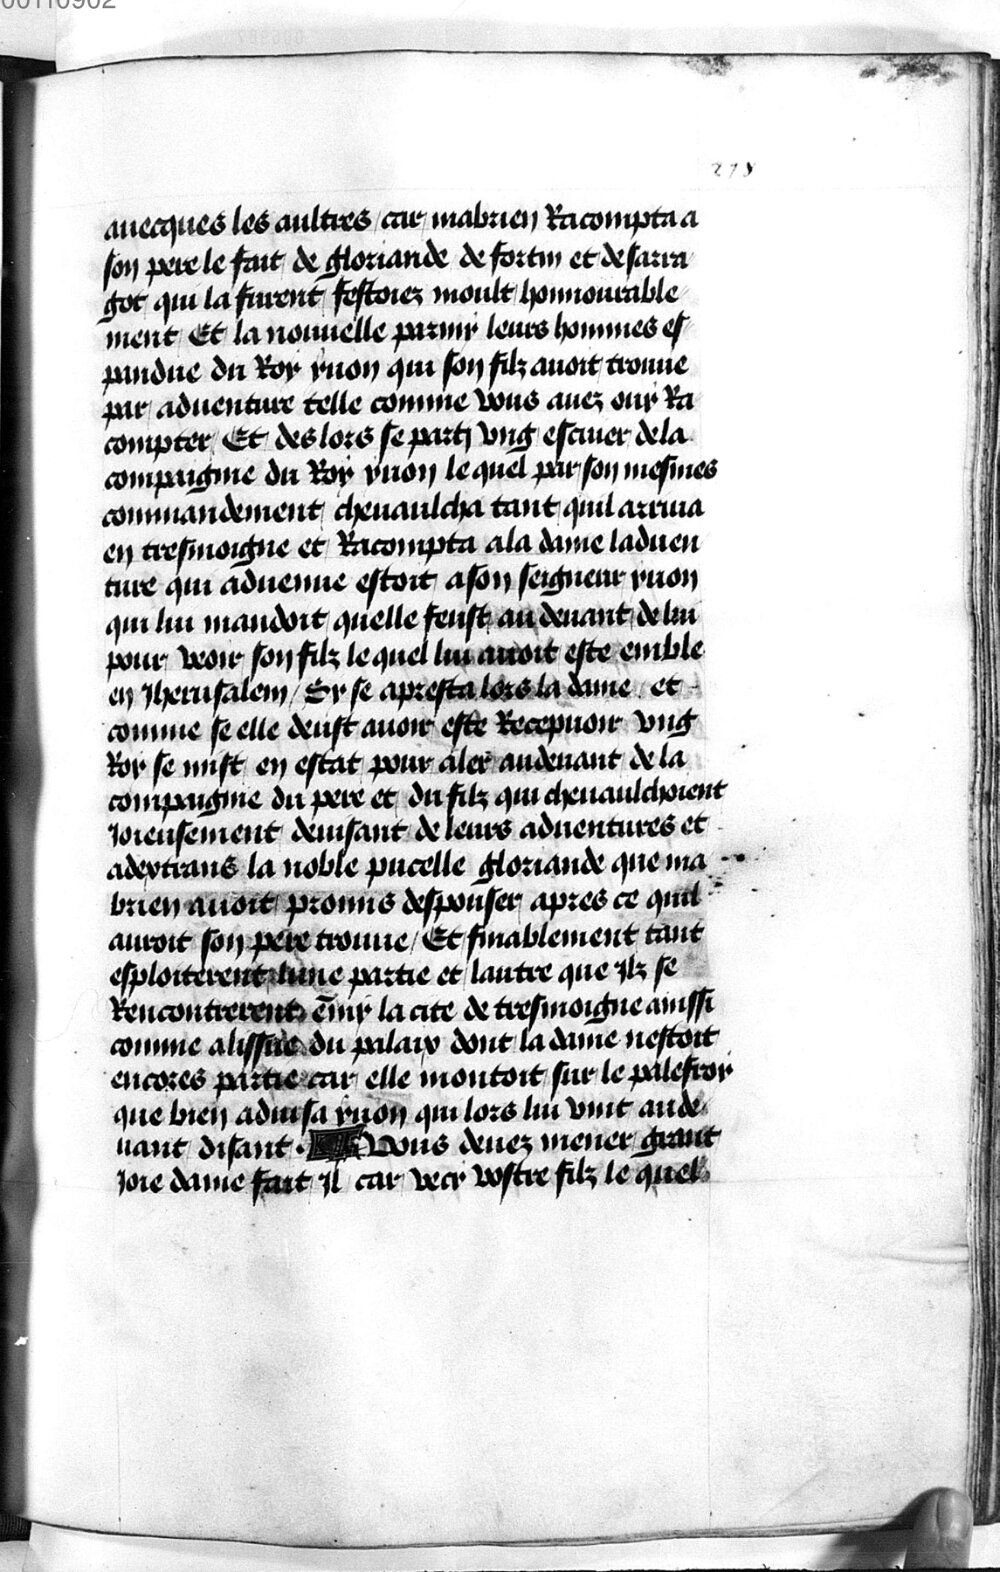 00110902
278
auecques les aultres car mabrien Racompta a
son pere le fait de gloriande de fortin et de sarra
got qui la furent festoiez moult honnourable
ment Et la nouuelle parmy leurs hommes es
pandue du Roy yuon qui son filz auoit trouue
par aduenture telle comme vous auez ouy Ra
compter Et des lors se party vng escuier de la
compaignie du Roy yuon le quel par son mesmes
commandement cheuaulcha tant quil arriua
en tresmoigne et Racompta a la dame laduen
ture qui aduenue estoit a son seigneur yuon
qui lui mandoit quelle feust au deuant de lui
pour veoir son filz le quel lui auoit este emble
en Jherusalem / Sy se apresta lors la dame et
comme se elle deust auoir este Recepuoir vng
Roy se mist en estat pour aler audeuant de la
compaignie du pere et du filz qui cheuaulchoient
Joieusement deuisant de leurs aduentures et
adextrans la noble pucelle gloriande que ma
brien auoit promis despouser apres ce quil
auroit son pere trouue / Et finablement tant
esploiterent lune partie et lautre que Jlz se
Rencontrerent emy la cite de tresmoigne ainssi
comme a lissue du palaix dont la dame nestoit
encores partie car elle montoit sur le palefroy
que bien aduisa yuon qui lors lui vint aude
uant disant . Vous deuez mener grant
Joie dame fait Jl car vecy vostre filz le quel